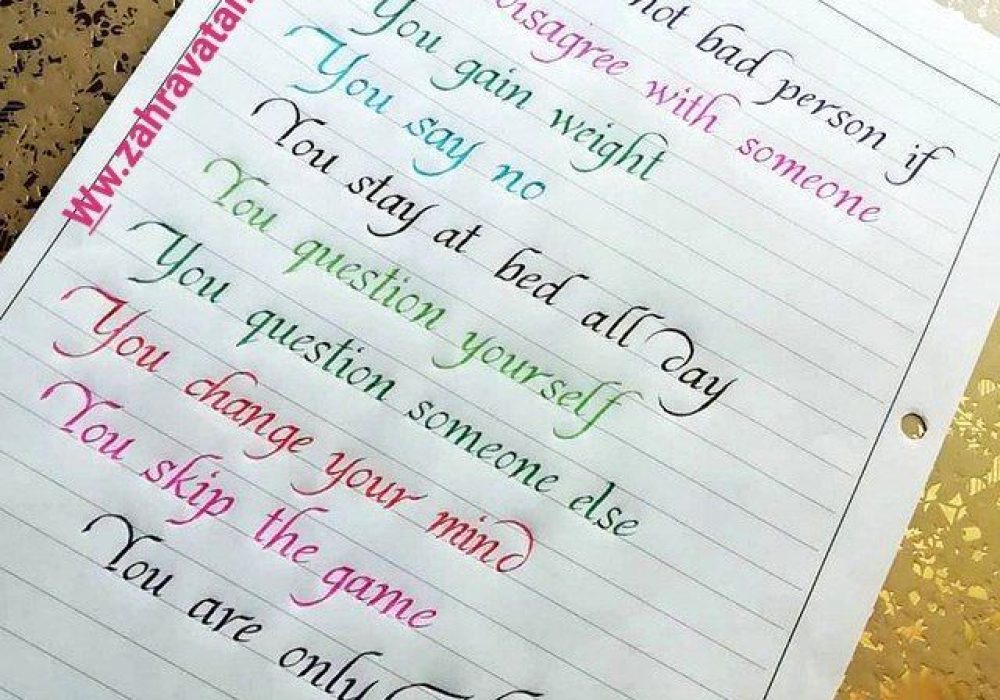 not bad person if
disagree with someone
You gain weight
You say no
You stay at bed all day
You question yourself
You question someone else
You change your mind
You skip the game
You are only
Ww.zahravatan